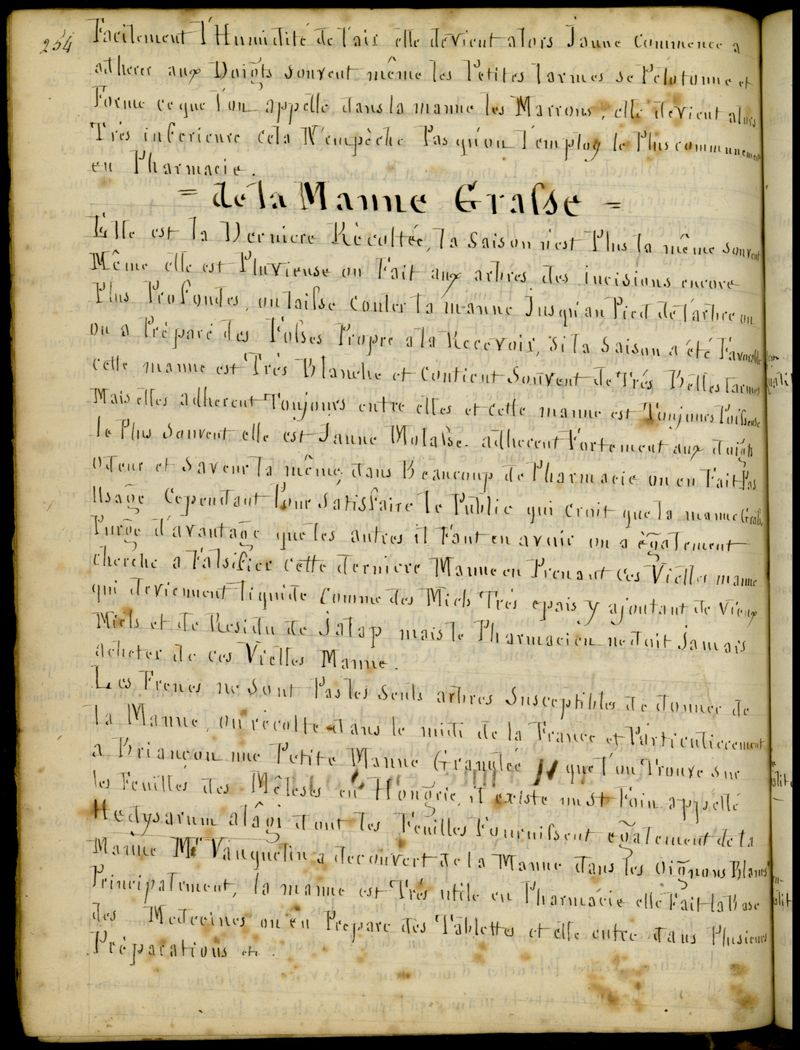 254
Facilement l'Humidité de l'air elle devient alors Jaune Commence a
adherer aux Doigts souvent même les Petites larmes se Pelotonne et
Forme ce que l'on appelle dans la manne les Marrons, elle devient alors
Tres inferieure Cela N'empèche Pas qu'on l'employ le Plus communement
en Pharmacie.
= de la Manne Grasse =
Elle est la Derniere Récoltée, la Saison n'est Plus la même souvent
Même elle est Pluvieuse on Fait aux arbres des incisions encore
Plus Profondes, on laisse Couler la manne Jusqu'au Pied de l'arbre ou
on a Préparé des Fosses Propre a la Recevoir, Si la Saison a été Favorable
cette manne est Très Blanche et Contient Souvent de Très Belles Larmes
Mais elles adherent Toujours entre elles et cette manne est Toujours Poisseuse
le Plus souvent elle est Jaune Molasse adherent Fortement aux doigts
Odeur et Saveur la même, dans Beaucoup de Pharmacie on en Fait Pas
Usage Cependant Pour Satisfaire le Public qui Croit que la manne Grasse
Purge d'avantage que les autres il Faut en avoir on a ègalement
cherché a Falsifier Cette derniere Manne en Prenant Ces Vielles manne
qui deviennent liquide Comme des Miels Très epais y ajoutant de Vieux
Miels et de Residu de Jalap mais le Pharmacien ne doit Jamais
acheter de ces Vielles Manne.
Les Frenes ne Sont Pas les Seuls arbres Susceptibles de donner de
la Manne, on récolte dans le midi de la France et Particulierement
a Briançon une Petite Manne Granulée que l'on Trouve sur
les Feuilles des Mêleses en Hongrie, il éxiste un st Foin appellé
Hedysarum alâgi dont les Feuilles Fournissent egalement de la
Manne Mr Vauquelin a decouvert de la Manne dans les Oignons Blancs
Principalement, la manne est Très utile en Pharmacie elle Fait la Base
des Medecines on en Prepare des Tablettes et elle entre dans Plusieurs
Préparations etc.